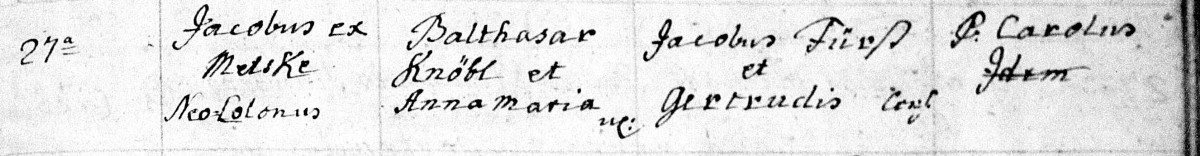 27ª
Jacobus ex
Metske
Neo-Colonus
Balthasar
Knöbl et
Anna maria
ux:
Jacobus Fürst
et
Gertrudis Conj
P. Carolus
Idem